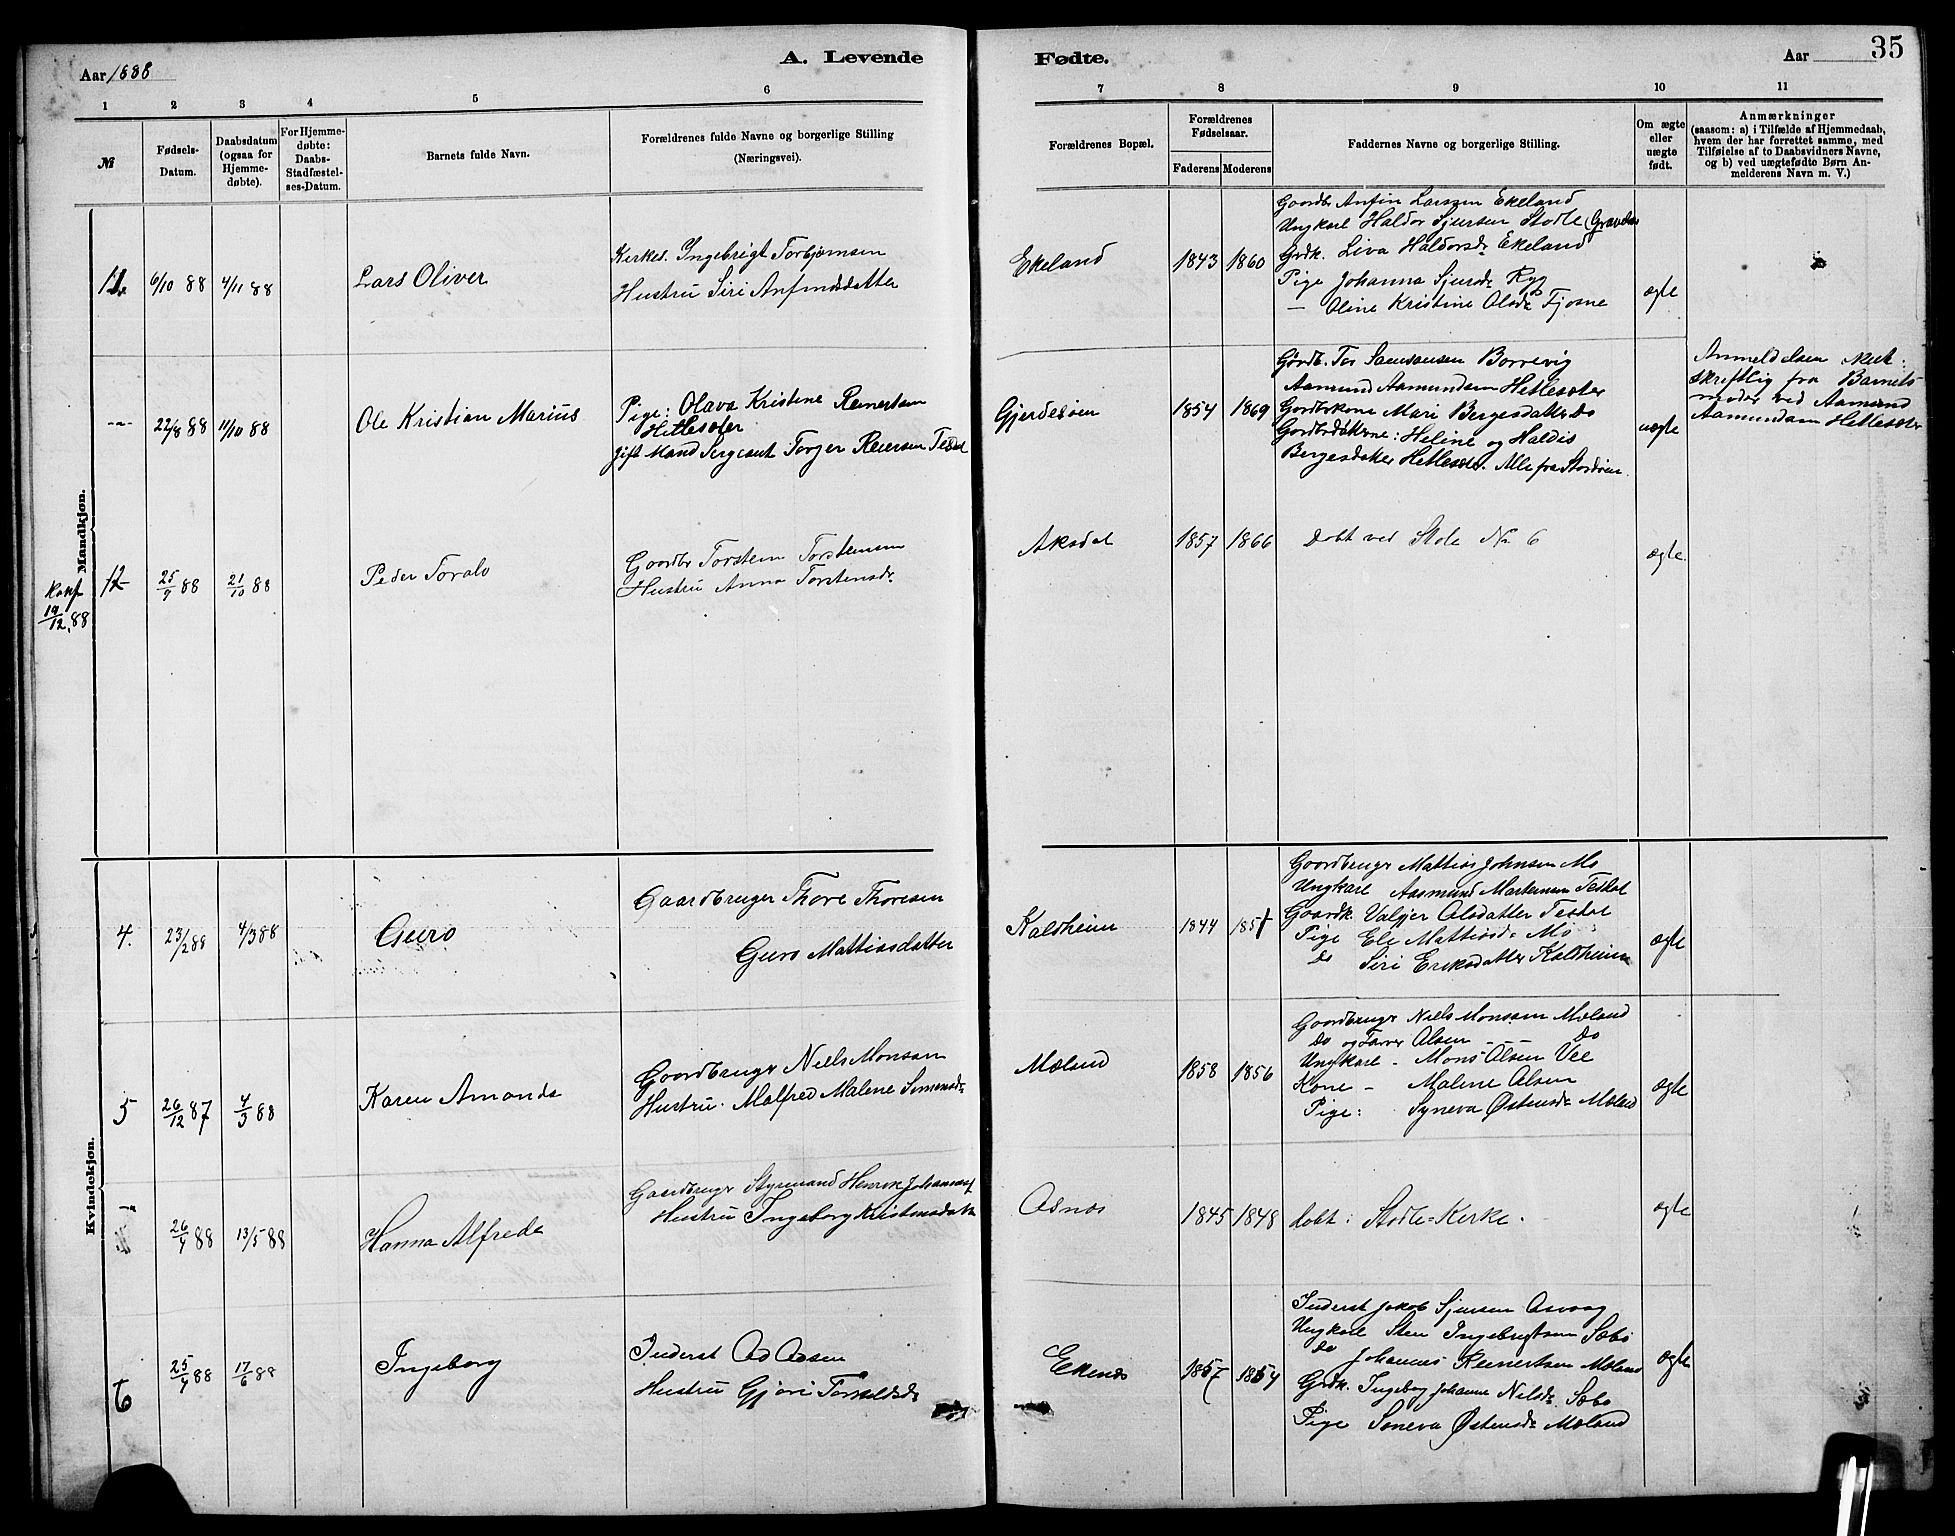 Aar 1888
A. Levende
Fødte.
Aar
35
1 2 3 4 5 6 7 8 9 10 11
№
Fødsels-
Datum.
Daabsdatum
(ogsaa for
Hjemme-
døbte).
For Hjemme-
døbte:
Daabs-
Stadfæstel-
ses-Datum.
Barnets fulde Navn.
Forældrenes fulde Navne og borgerlige Stilling
(Næringsvei).
Forældrenes Bopæl.
Forældrenes
Fødselsaar.
Faderens Moderens
Faddernes Navne og borgerlige Stilling.
Om ægte
eller
uægte
født.
Anmærkninger
(saasom: a) i Tilfælde af Hjemmedaab,
hvem der har forrettet samme, med
Tilføielse af to Daabsvidners Navne,
og b) ved uægtefødte Børn An-
melderens Navn m. V.)
Mandkjøn.
11. 6/10 88 4/11 88
Lars Oliver
Kirkes. Ingebrigt Torbjørnsen
Hustru Siri Anfinnsdatter
Ekeland
1843 1860
Gaardbr Anfin Larssen Ekeland
Ungkarl Haldor Sjursen Stodle
Grdk. Liva Haldorsdr Ekeland
Pige Johanna Sjursdr
— Oline Kristine Olsdr Fjosne
ægte
-"- 22/8 88 11/10 88
Ole Kristian Marius
Pige: Olava Kristine Reinertsen
Hetlesæter
gift Mand Sergeant Torger Reiersen
Gjerdesøen
1854 1869
Gørdb. Tor Samsonsen Borrevig
Aamund Aamundsen Hetlesæter
Gordbrkone Mari Bergesdatter Do
Gordbrdøtrene: Heline og Haldis
Bergesdøtter Hetlesæter. Alle fra Stordøen.
uægte
Anmeldelsen
skriftlig fra Barnets
moder ved Aamund
Aamundsen Hetlesæter
Konf
19/12.88
12 25/9 88 21/10 88
Peder Toralv
Gaardbr Torstein Torsteinsen
Hustru Anna Torstensdr
Aksdal
1857 1866
Døbt ved Stole No 6
ægte.
Kvindekjøn.
4. 23/2 88 4/3 88
Guro
Gaardbruger Thore Thoresen
Guro Mattiasdatter
Kaldheim
1844 1851
Gaardbruger Mattias Johnsen Mo
Ungkarl Aasmund Martensen
Gaardk. Valgjer Olsdatter
Pige Eli Mattiasdr Mo
do Siri Eriksdatter Kaldheim
ægte
5 26/12 87 4/3 88
Karen Amanda
Gaardbruger Niels Monsen
Hustru. Malfred Malene Simonsdr
Mæland
1858 1856
Gaardbruger Niels Monsen Mæland
Do og Farver Olsen — Do
Ungkarl - Mons Olsen Vee
Kone — Malene Olsen
Pige: Syneva Østensdr Mæland
ægte
26/4 88 13/5 88
Hanna Alfreda
Gaardbruger Styrmand Henrik Johannesen
Hustru Ingeborg Kristensdatter
Osnes
1845 1848
døbt i Stodle-Kirke.
ægte
6 25/4 88 17/6 88
Ingeborg
Inderst Od Odsen
Hustru Gjøri Torkildsdr
Ekenes
1857 1854
Inderst Jakob Sjursen Osvaag
Ungkarl Sten Ingebrigtsen Sæbø
do Johannes Reinertsen Mæland
Grdk. Ingeborg Johanne Nilsdr Sæbø
Pige Søneva Østensdr Mæland
ægte